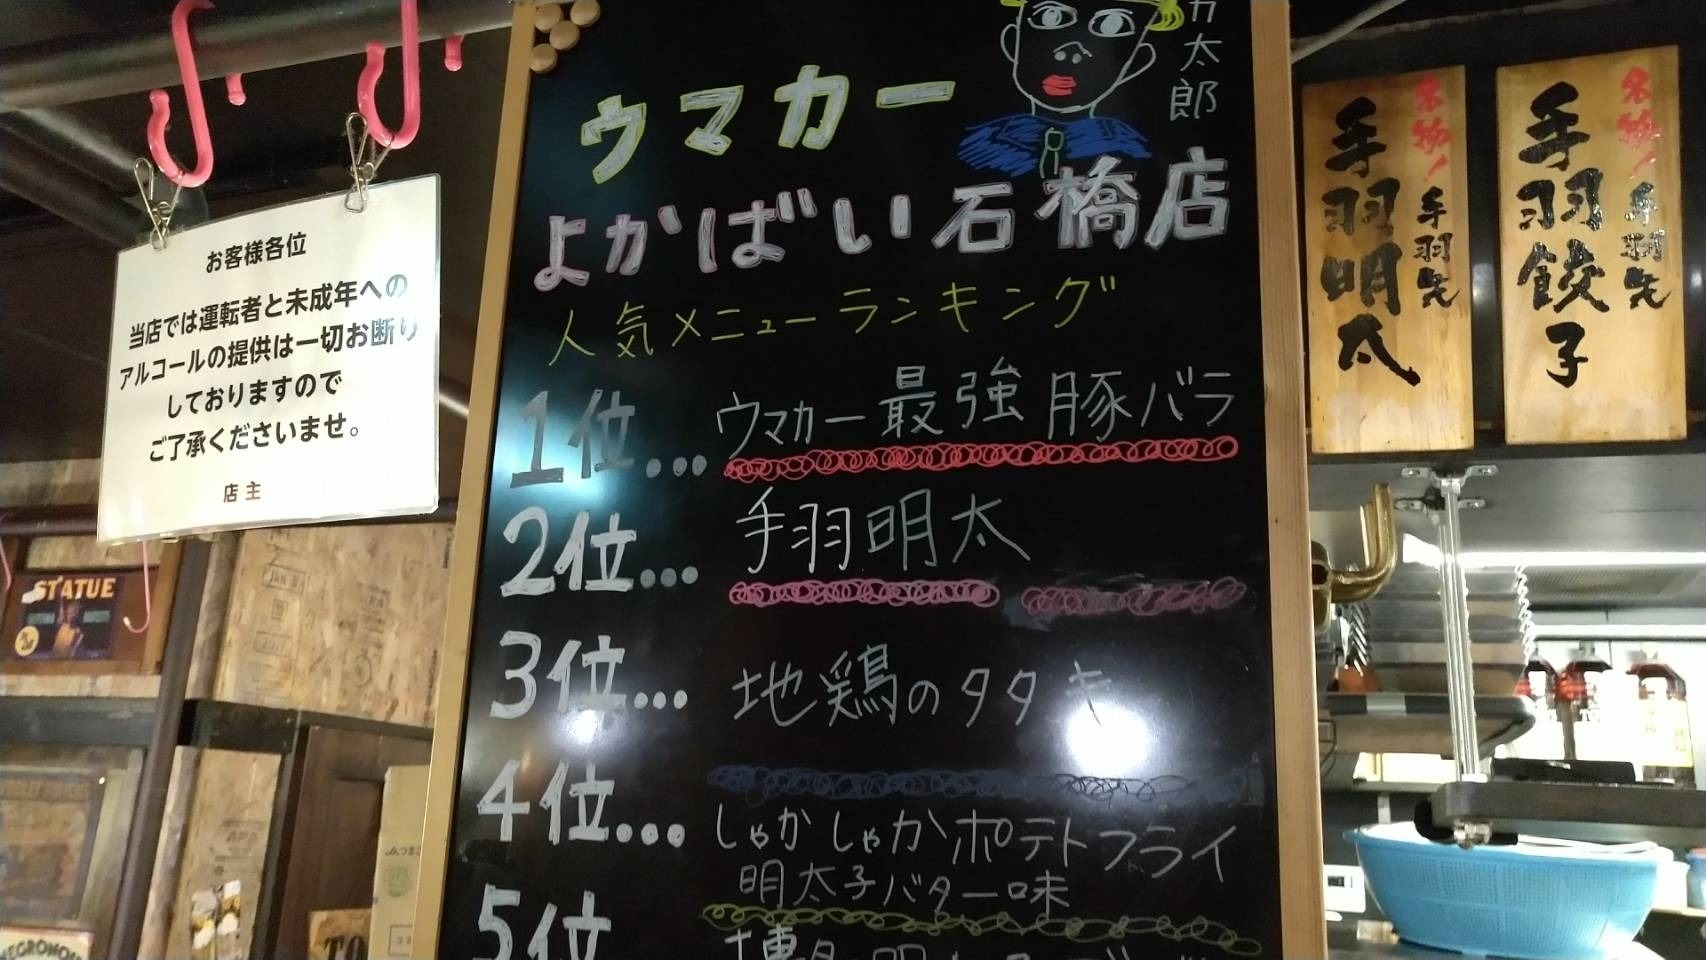 お客様各位
当店では運転者と未成年への
アルコールの提供は一切お断り
しておりますので
ご了承くださいませ。
店主
STATUE
カ太郎
ウマカー
よかばい石橋店
人気メニューランキング
1位... ウマカー最強豚バラ
2位... 手羽明太
3位... 地鶏のタタキ
4位... しゃかしゃかポテトフライ
明太子バター味
5位
名物!手羽先
手羽明太
名物!手羽先
手羽餃子